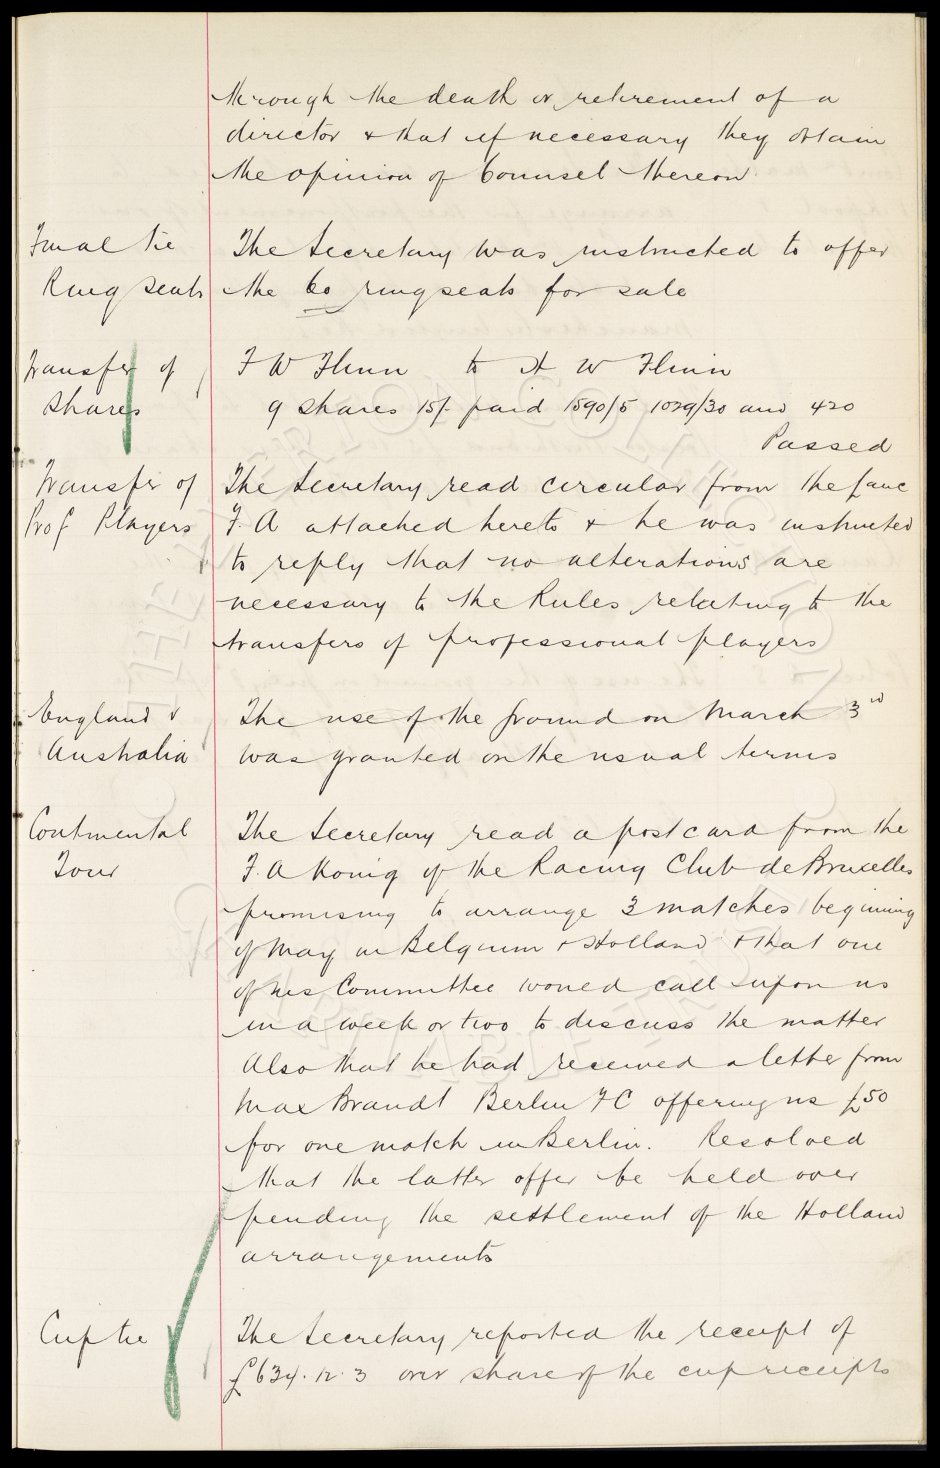 through the death or retirement of a
director & that if necessary they obtain
the opinion of Counsel thereon.
Final tie
Ring seats
The Secretary was instructed to offer
the 60 ring seats for sale
Transfer of
Shares
F W Flinn to A W Flinn
9 shares 15/- paid 1590/5 1029/30 and 420
Passed
Transfer of
Prof Players
The Secretary read circular from the Lanc
F.A attached hereto & he was instructed
to reply that no alterations are
necessary to the Rules relating to the
transfers of professional players
England &
Australia
The use of the ground on March 3rd
was granted on the usual terms
Continental
Tour
The Secretary read a post card from the
F.A Konig of the Racing Club de Bruxelles
promising to arrange 3 matches beginning
of May in Belgium & Holland & that one
of his Committee would call upon us
in a week or two to discuss the matter
Also that he had received a letter from
Max Brandt Berlin F C offering us £50
for one match in Berlin. Resolved
that the latter offer be held over
pending the settlement of the Holland
arrangements
Cup tie
The Secretary reported the receipt of
£634.12.3 our share of the cup receipts